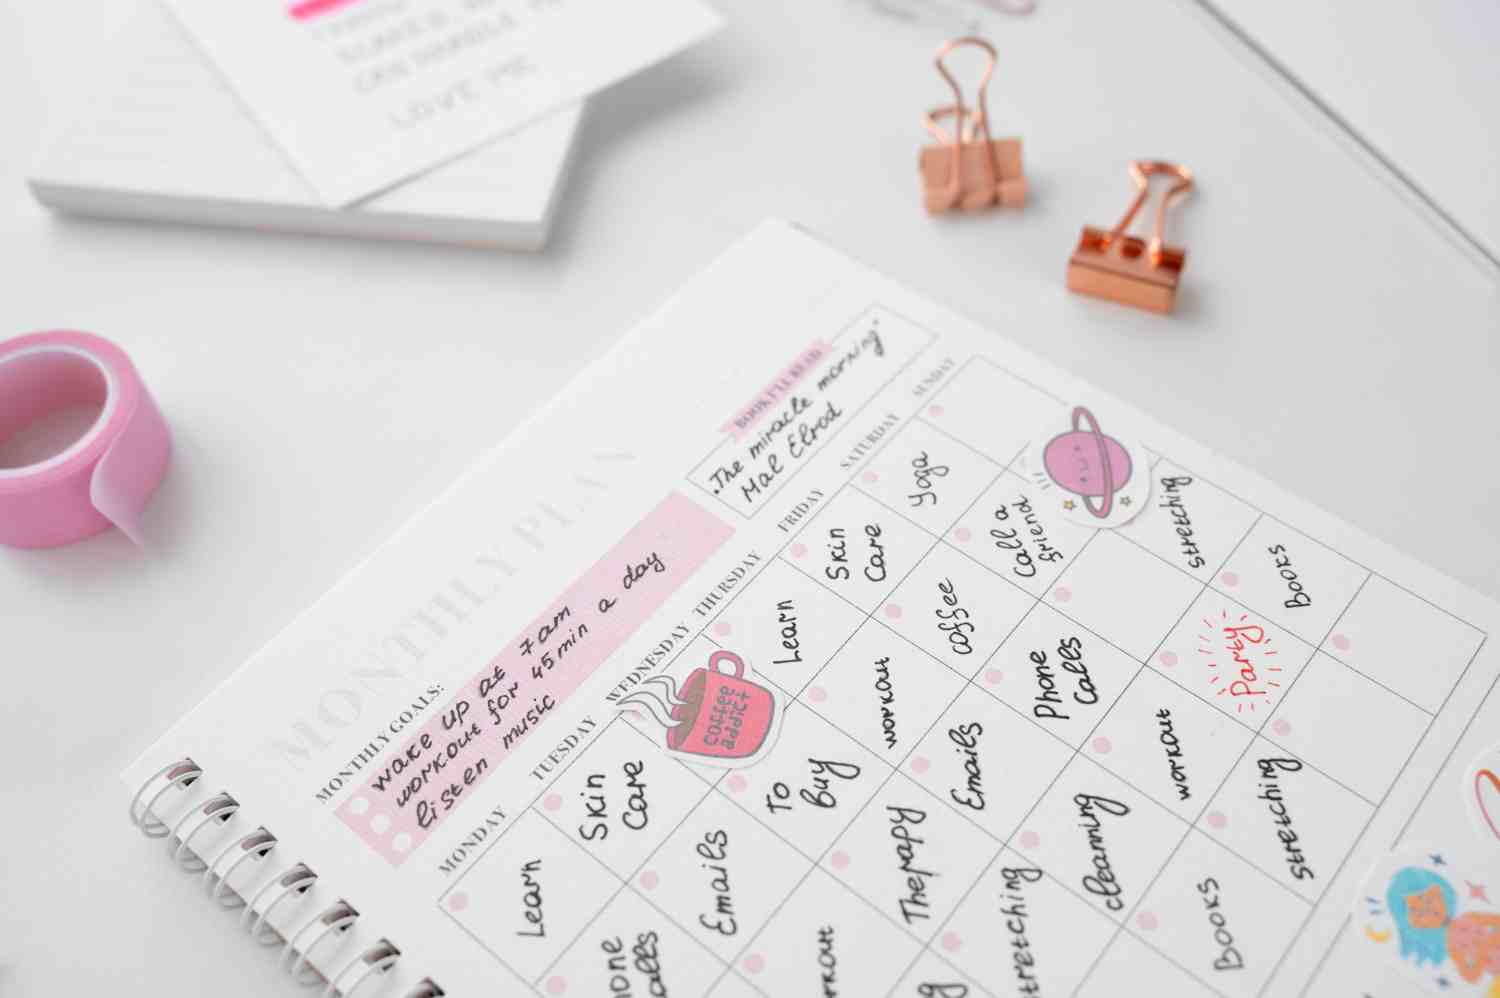 LOVE ME
MONTHLY PLAN
MONTHLY GOALS:
wake up at 7am
workout for 45min a day
listen music
BOOK I'LL READ
"The miracle morning"
Mal Elrod
MONDAY
TUESDAY
WEDNESDAY
THURSDAY
FRIDAY
SATURDAY
SUNDAY
Learn
Skin
Care
coffee
addict
Learn
Skin
Care
Yoga
hone
alls
Emails
To
Buy
workout
coffee
Call a
friend
rkout
Therapy
Emails
Phone
Calls
stretching
g
stretching
cleaning
workout
Party
Books
Books
stretching